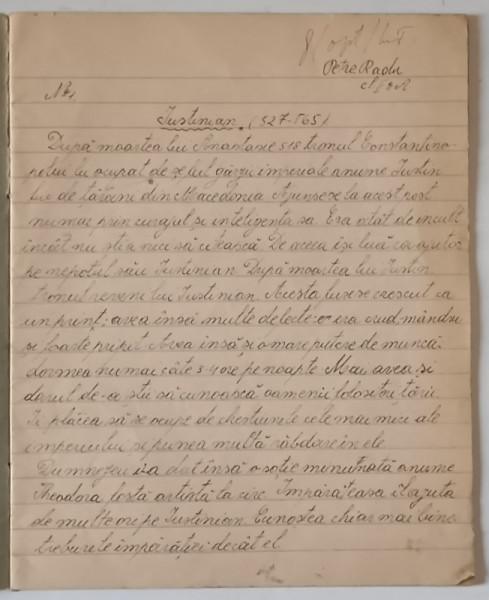 8/opt/
Petre Radu
Nr.
Iustinian. (527-565)
După moartea lui Anastase 518 tronul Constantino-
polui lu ocupat de șeful gărzii imperiale anume Iustin
luc de țărani din Macedonia. Ajunsese la acest post
numai prin curajul și inteligența sa. Era atât de incult
încât nu știa nici să citească. De aceea își luă ca ajutor
pe nepotul său Iustinian. După moartea lui Iustin
tronul reveni lui Iustinian. Acesta fusese crescut ca
un prinț; avea însă multe defecte: era crud mândru
și foarte pripit. Avea însă și o mare putere de muncă.
dormea numai câte 3-4 ore pe noapte. Mai avea și
darul de-a ști să cunoască oamenii folositori țării.
Îi plăcea să se ocupe de chestiunile cele mai mici ale
imperiului și punea multă răbdare în ele.
Dumnezeu i-a dat însă o soție minunată anume
Theodora fostă artistă la circ. Împărăteasa îl ajuta
de multe ori pe Iustinian. Cunoștea chiar mai bine
treburile împărăției decât el.